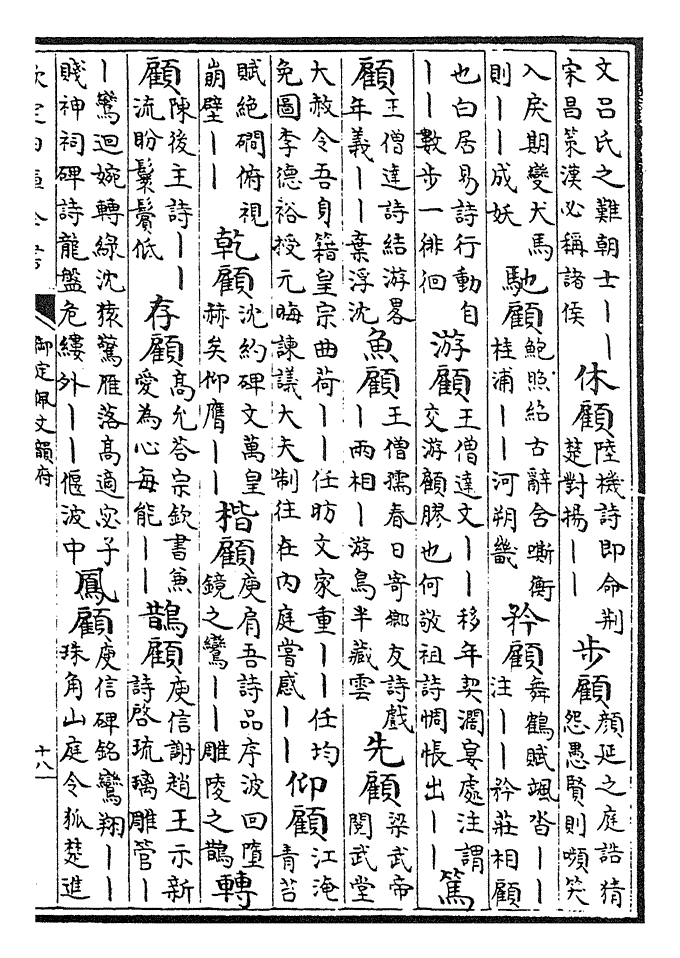 文呂氏之難朝士丨丨宋昌策漢必稱諸侯休顧陸機詩即命荆楚對揚丨丨步顧顏延之庭誥猜怨愚賢則嚬笑
入戾期變犬馬則丨丨成妖馳顧鮑照紹古辭含嘶衡桂浦丨丨河朔畿矜顧舞鶴賦颯沓丨丨注丨丨矜莊相顧
也白居易詩行動自丨丨數步一徘徊游顧王僧達文丨丨移年契濶宴處注謂交游顧膠也何敬祖詩惆悵出丨丨篤
顧王僧達詩結游畧年義丨丨棄浮沈魚顧王僧孺春日寄鄉友詩戲丨兩相丨游鳥半藏雲先顧梁武帝閲武堂
大赦令吾身籍皇宗曲荷丨丨任昉文家重丨丨任均免圖李德裕授元晦諫議大夫制往在内庭嘗感丨丨仰顧江淹青苔
賦絶磵俯視崩壁丨丨乾顧沈約碑文萬皇赫矣仰膺丨丨楷顧庾肩吾詩品序波回墮鏡之鸞丨丨雕陵之鵲轉
顧陳後主詩丨丨流盼鬟鬢低存顧高允荅宗欽書兼愛為心每能丨丨鵲顧庾信謝趙王示新詩啓琉璃雕管丨
丨鸞迴婉轉綠沈猿驚雁落高適宓子賤神祠碑詩龍盤危縷外丨丨偃波中鳳顧庾信碑銘鸞翔丨丨珠角山庭令狐楚進
欽定四庫全書
御定佩文韻府
十八